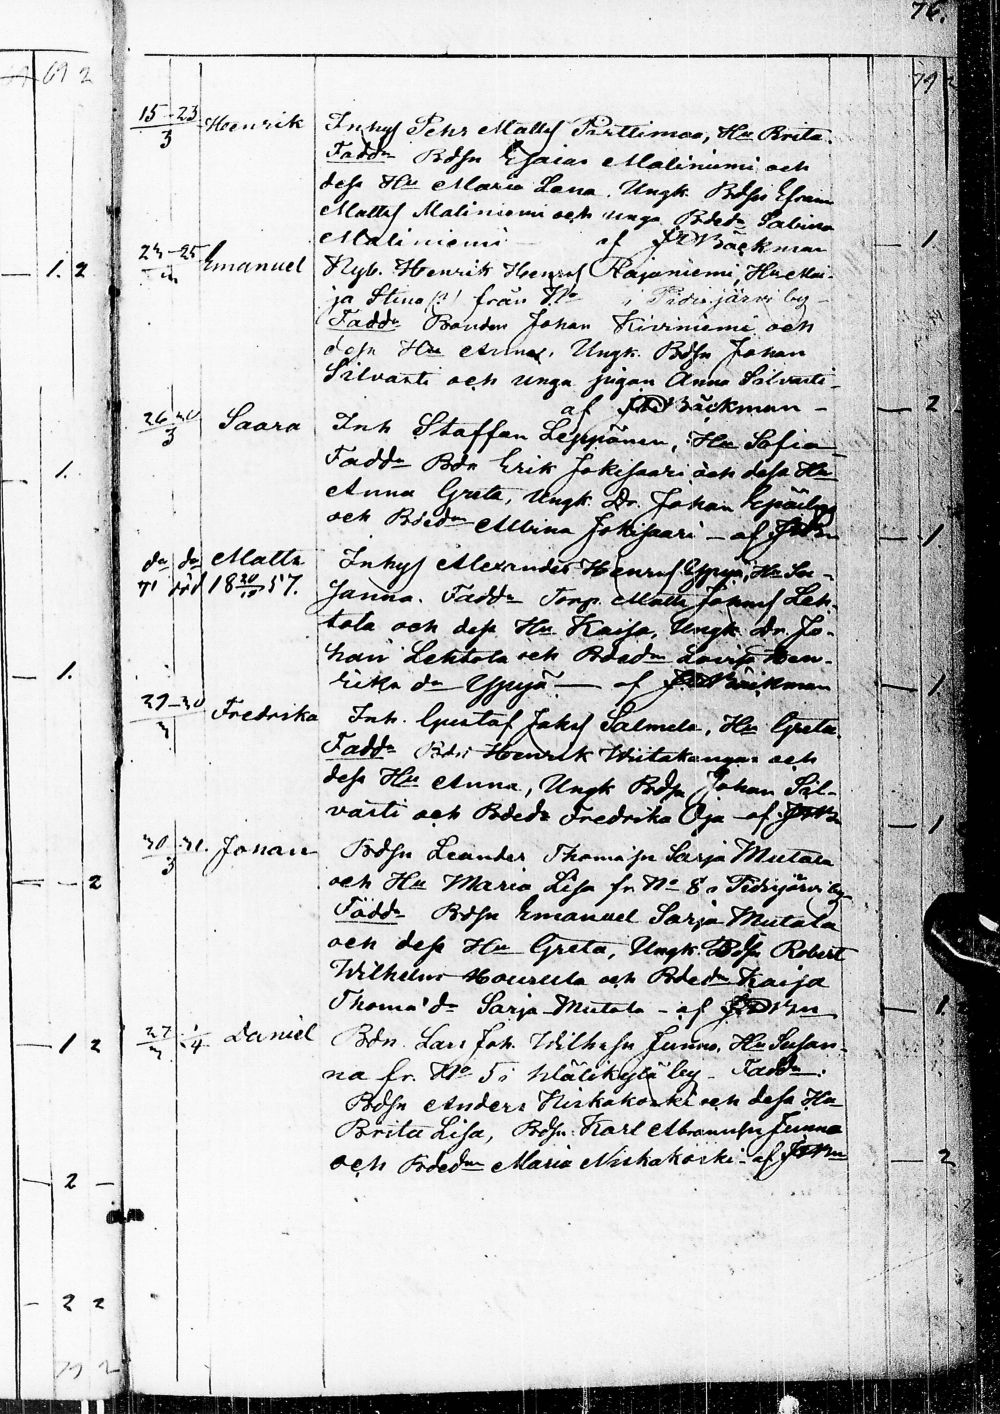 76.
69 2
79 2
15-23
3
Henrik
Inhys Pehr Matts Parttimaa, Hu Brita.
Fadd: Bdsn Esaias Maliniemi och
dess Hu Maria Lena. Ungk Bdsn Efraim
Matts Maliniemi och unga Bded: Sabina
Maliniemi — af Bäckman
1
23-25
Emanuel
Nyb. Henrik Henrs Rajaniemi, Hu Mai-
ja Stina (?) från No i Pidisjärvi by —
Fadd: Bonden Johan Kiviniemi och
dess Hu Anna, Ungk. Bdsn Johan
Silvasti och unga pigan Anna Silvasti —
af Bäckman —
1. 2
2
26-30
3
Saara
Inh Staffan Leppänen, Hu Sofia —
Fadd: Bdn Erik Jokisaari och dess Hu
Anna Greta, Ungk. Dr. Johan
och Bded: Albina Jokisaari — af
1.
1
do do
Matts
18 20/10 57.
Inhys Alexander Henrs Yppyä, Hu Su-
sanna. Fadd: Torp. Matts Johns Leh-
tola och dess Hu Kaisa, Ungk Dr. Jo-
han Lehtola och Bded: Lovisa Hen-
rika do Yppyä — af Bäckman
1.
1
29-30
3
Fredrika
Inh. Gustaf Jaks Salmela, Hu Greta
Fadd: Bdn Henrik Wiitakangas och
dess Hu Anna, Ungk Bdsn Johan Sil-
vasti och Bded: Fredrika Oja — af
1
30-31.
3
Johan
Bdsn Leander Thomasn Sarja Mutala
och Hu Maria Lisa fr. No 8 i Pidisjärvi by
Fadd: Bdsn Emanuel Sarja Mutala
och dess Hu Greta, Ungk. Bdsn Robert
Wilhelm och Bded: Kaisa
Thoma do Sarja Mutala — af
2
1.
27 1/4
3
Daniel
Bdn. Lars Joh. Wilhsn Junno, Hu Susan-
na fr. No 5 i Wälikylä by — Fadd:
Bdsn Anders Niskakoski och dess Hu
Brita Lisa, Bdsn: Karl Junno
och Bded: Maria Niskakoski — af
1 2
2
2 —
2 2
79 2